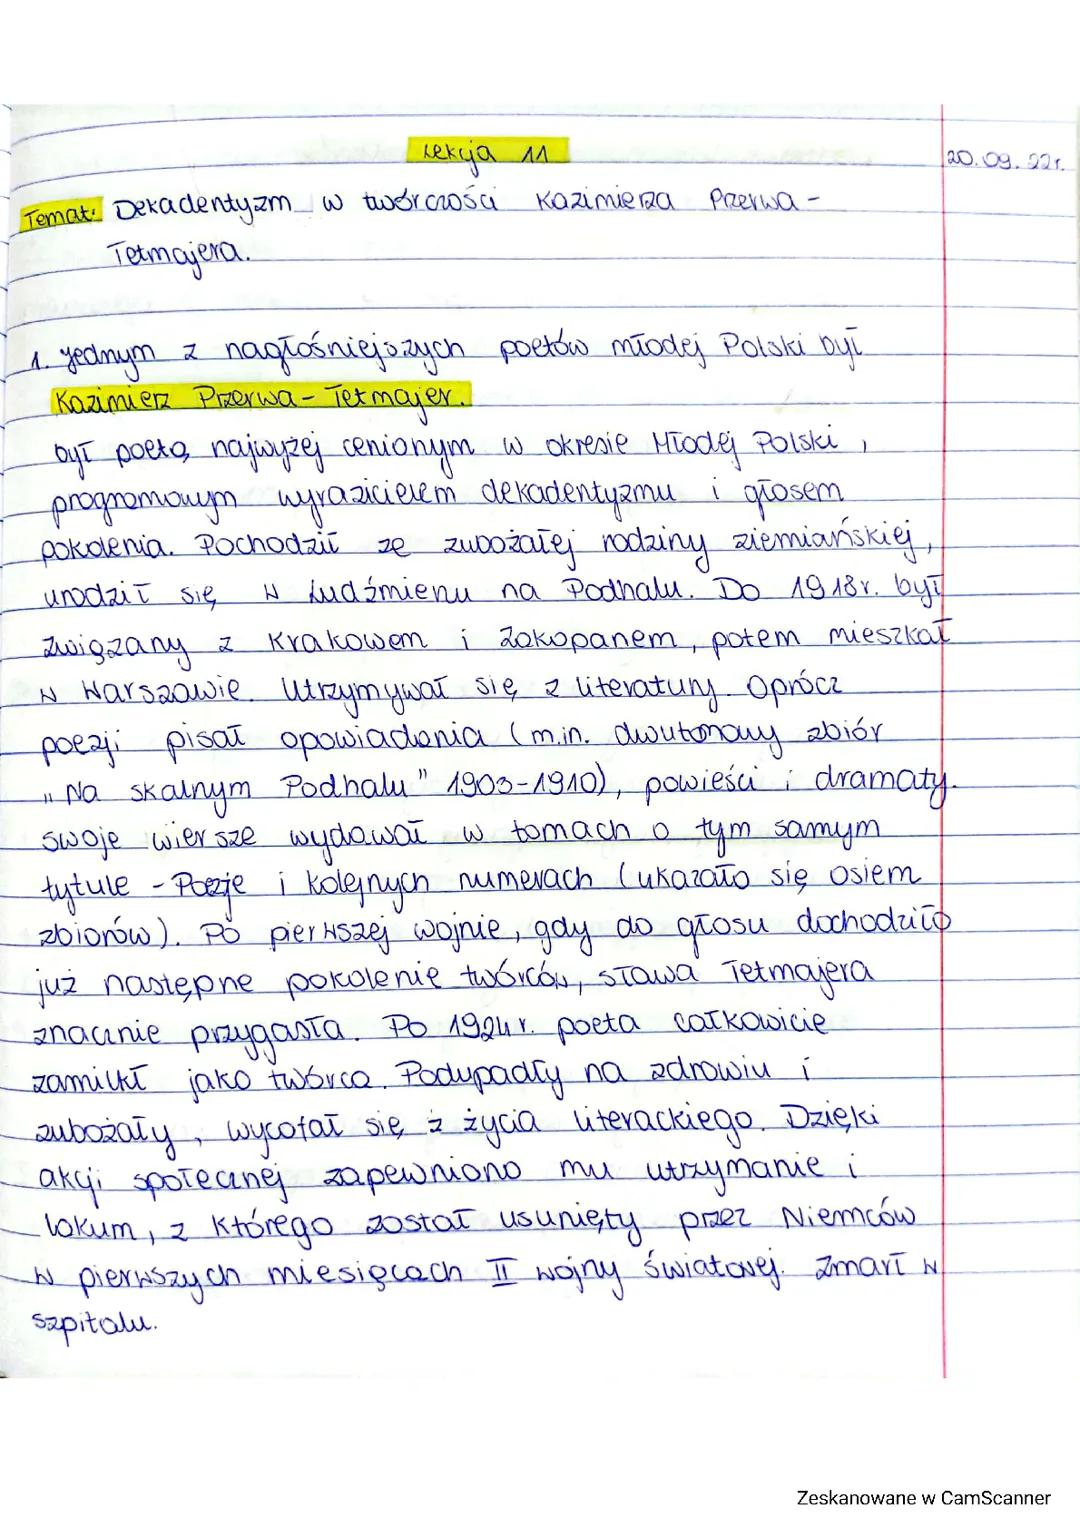 Lekcja 11
20.09.22r.
Temat: Dekadentyzm w twórczości Kazimierza Przerwa-
Tetmajera.
1. Jednym z nagłośniejszych poetów młodej Polski był
Kazimierz Przerwa-Tetmajer.
był poetą najwyżej cenionym w okresie Młodej Polski,
programowym wyrazicielem dekadentyzmu i głosem
pokolenia. Pochodził ze zubożałej rodziny ziemiańskiej,
urodził się w Ludźmienu na Podhalu. Do 1918r. był
związany z Krakowem i Zakopanem, potem mieszkał
w Warszawie. Utrzymywał się z literatury. Oprócz
poezji pisał opowiadania (m.in. dwutomowy zbiór
„Na skalnym Podhalu" 1903-1910), powieści i dramaty.
swoje wiersze wydawał w tomach o tym samym
tytule - Poezje i kolejnych numerach (ukazało się osiem
zbiorów). Po pierwszej wojnie, gdy do głosu dochodziło
już następne pokolenie twórców, sława Tetmajera
znacznie przygasła. Po 1924r. poeta całkowicie
zamilkł jako twórca. Podupadły na zdrowiu i
zubożały, wycofał się z życia literackiego. Dzięki
akcji społecznej zapewniono mu utrzymanie i
lokum, z którego został usunięty przez Niemców
w pierwszych miesiącach II wojny światowej. Zmarł w
szpitalu.
Zeskanowane w CamScanner